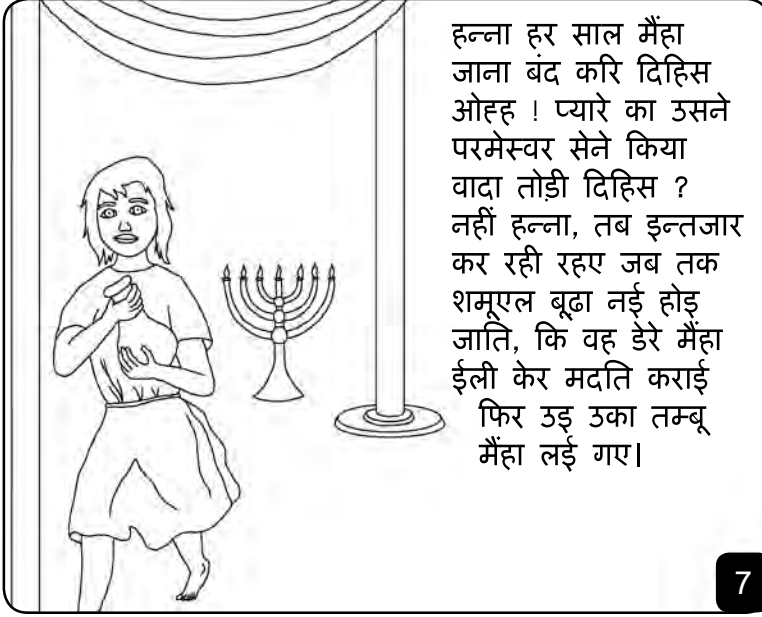 हन्ना हर साल मैंहा
जाना बंद करि दिहिस
ओह्ह ! प्यारे का उसने
परमेस्वर सेने किया
वादा तोड़ी दिहिस ?
नहीं हन्ना, तब इन्तजार
कर रही रहए जब तक
शमूएल बूढ़ा नई होइ
जाति, कि वह डेरे मैंहा
ईली केर मदति कराई
फिर उइ उका तम्बू
मैंहा लई गए।
7